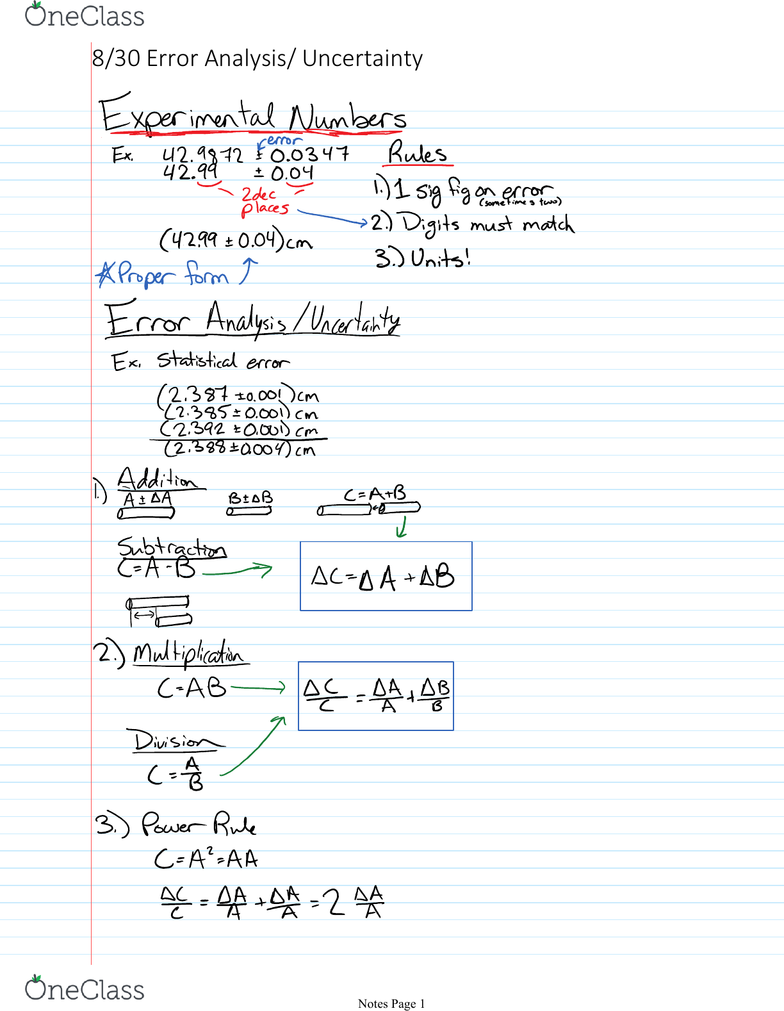 OneClass
8/30 Error Analysis/ Uncertainty
Experimental Numbers
error
Ex. 42.9872 ± 0.0347
42.99 ± 0.04
2dec
places
(42.99 ± 0.04)cm
*Proper form
Rules
1.) 1 sig fig on error
(sometimes two)
2.) Digits must match
3.) Units!
Error Analysis/Uncertainty
Ex. Statistical error
(2.387 ±0.001)cm
(2.385 ± 0.001) cm
(2.392 ± 0.001) cm
(2.388 ±0.004) cm
1.) Addition
A ± ΔA B±ΔB C=A+B
Subtraction
C=A-B
ΔC=ΔA+ΔB
2.) Multiplication
C=AB
ΔC/C = ΔA/A + ΔB/B
Division
C=A/B
3.) Power Rule
C=A²=AA
ΔC/C = ΔA/A + ΔA/A = 2 ΔA/A
OneClass
Notes Page 1